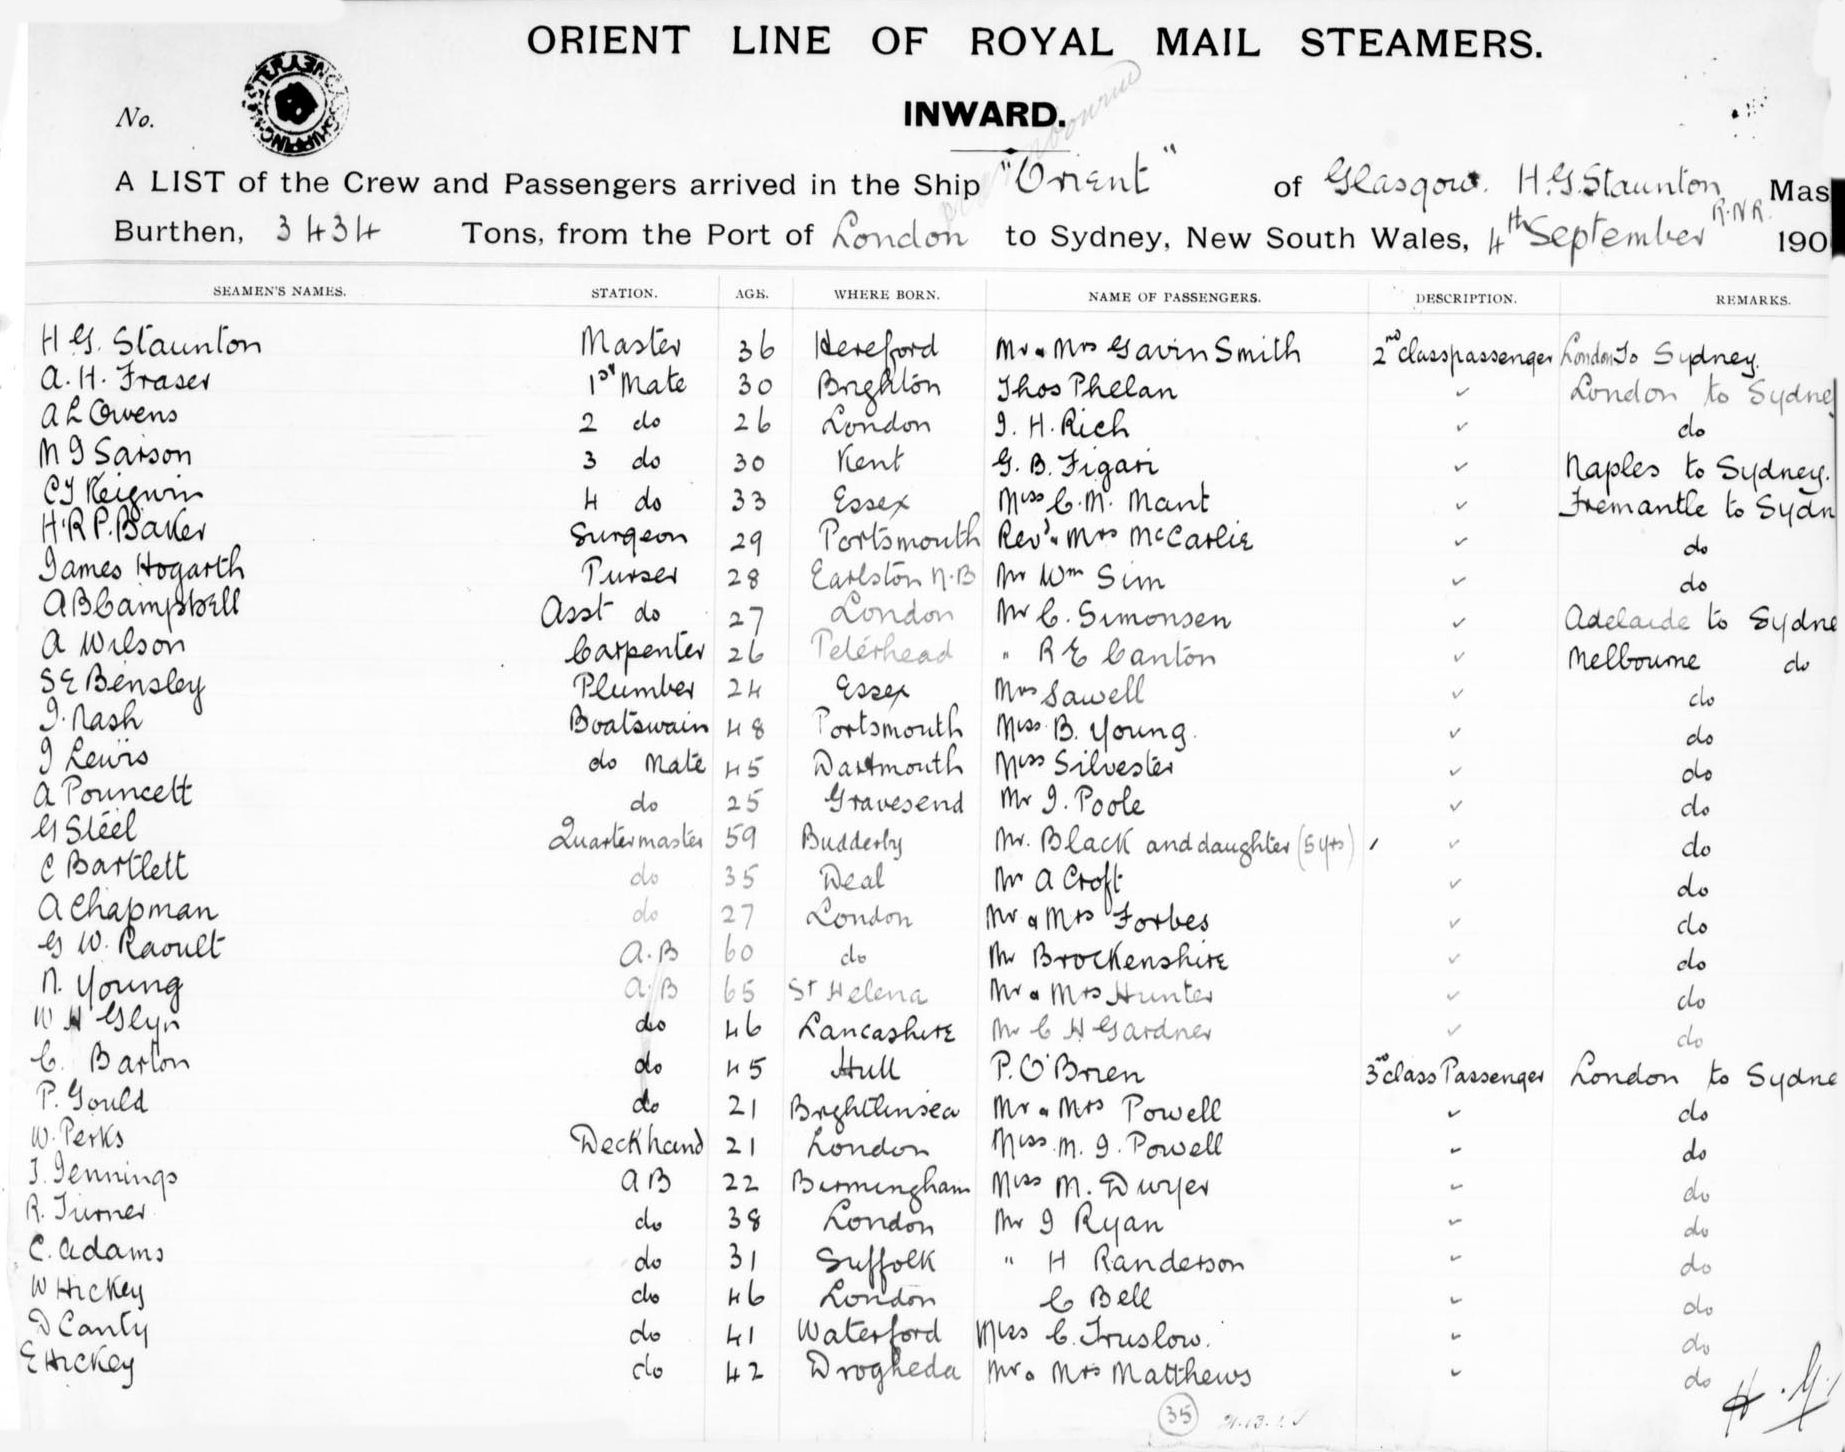 ORIENT LINE OF ROYAL MAIL STEAMERS.
INWARD.
No.
A LIST of the Crew and Passengers arrived in the Ship "Orient" of Glasgow. H.G. Staunton Mas
R.N.R.
Burthen, 3434 Tons, from the Port of London to Sydney, New South Wales, 4th September 190
SEAMEN'S NAMES. STATION. AGE. WHERE BORN. NAME OF PASSENGERS. DESCRIPTION. REMARKS.
H G. Staunton Master 36 Hereford Mr & Mrs Gavin Smith 2nd class passenger London To Sydney.
A. H. Fraser 1st Mate 30 Brighton Thos Phelan ✓ London to Sydney
A L Owens 2 do 26 London J. H. Rich ✓ do
M J Sarson 3 do 30 Kent G. B. Figari ✓ Naples to Sydney.
C J Keigwin 4 do 33 Essex Miss C. M. Mant ✓ Fremantle to Sydn
H. R P. Baker Surgeon 29 Portsmouth Revd & Mrs McCarlie ✓ do
James Hogarth Purser 28 Earlston N.B Mr Wm Sim ✓ do
A B Campbell Asst do 27 London Mr C. Simonsen ✓ Adelaide to Sydne
A Wilson Carpenter 26 Peterhead " R E Canton ✓ Melbourne do
S E Bensley Plumber 24 Essex Mrs Sawell ✓ do
J. Nash Boatswain 48 Portsmouth Miss B. Young. ✓ do
J Lewis do Mate 45 Dartmouth Miss Silvester ✓ do
A Pouncett do 25 Gravesend Mr J. Poole ✓ do
G Steel Quartermaster 59 Budderby Mr. Black and daughter (5 yrs) ✓ do
C Bartlett do 35 Deal Mr A Croft ✓ do
A Chapman do 27 London Mr & Mrs Forbes ✓ do
G W. Raoult A.B 60 do Mr Brockenshire ✓ do
N. Young A.B 65 St Helena Mr & Mrs Hunter ✓ do
W H Glyn do 46 Lancashire Mr C H Gardner ✓ do
C. Barton do 45 Hull P. O'Brien 3rd class Passenger London to Sydne
P. Gould do 21 Brightlinsea Mr & Mrs Powell ✓ do
W. Perks Deckhand 21 London Miss M. J. Powell ✓ do
J. Jennings A B 22 Birmingham Miss M. Dwyer ✓ do
R. Turner do 38 London Mr J Ryan ✓ do
C. Adams do 31 Suffolk " H Randerson ✓ do
W Hickey do 46 London C Bell ✓ do
D Canty do 41 Waterford Miss C. Truslow. ✓ do
E Hickey do 42 Drogheda Mr & Mrs Matthews ✓ do
35